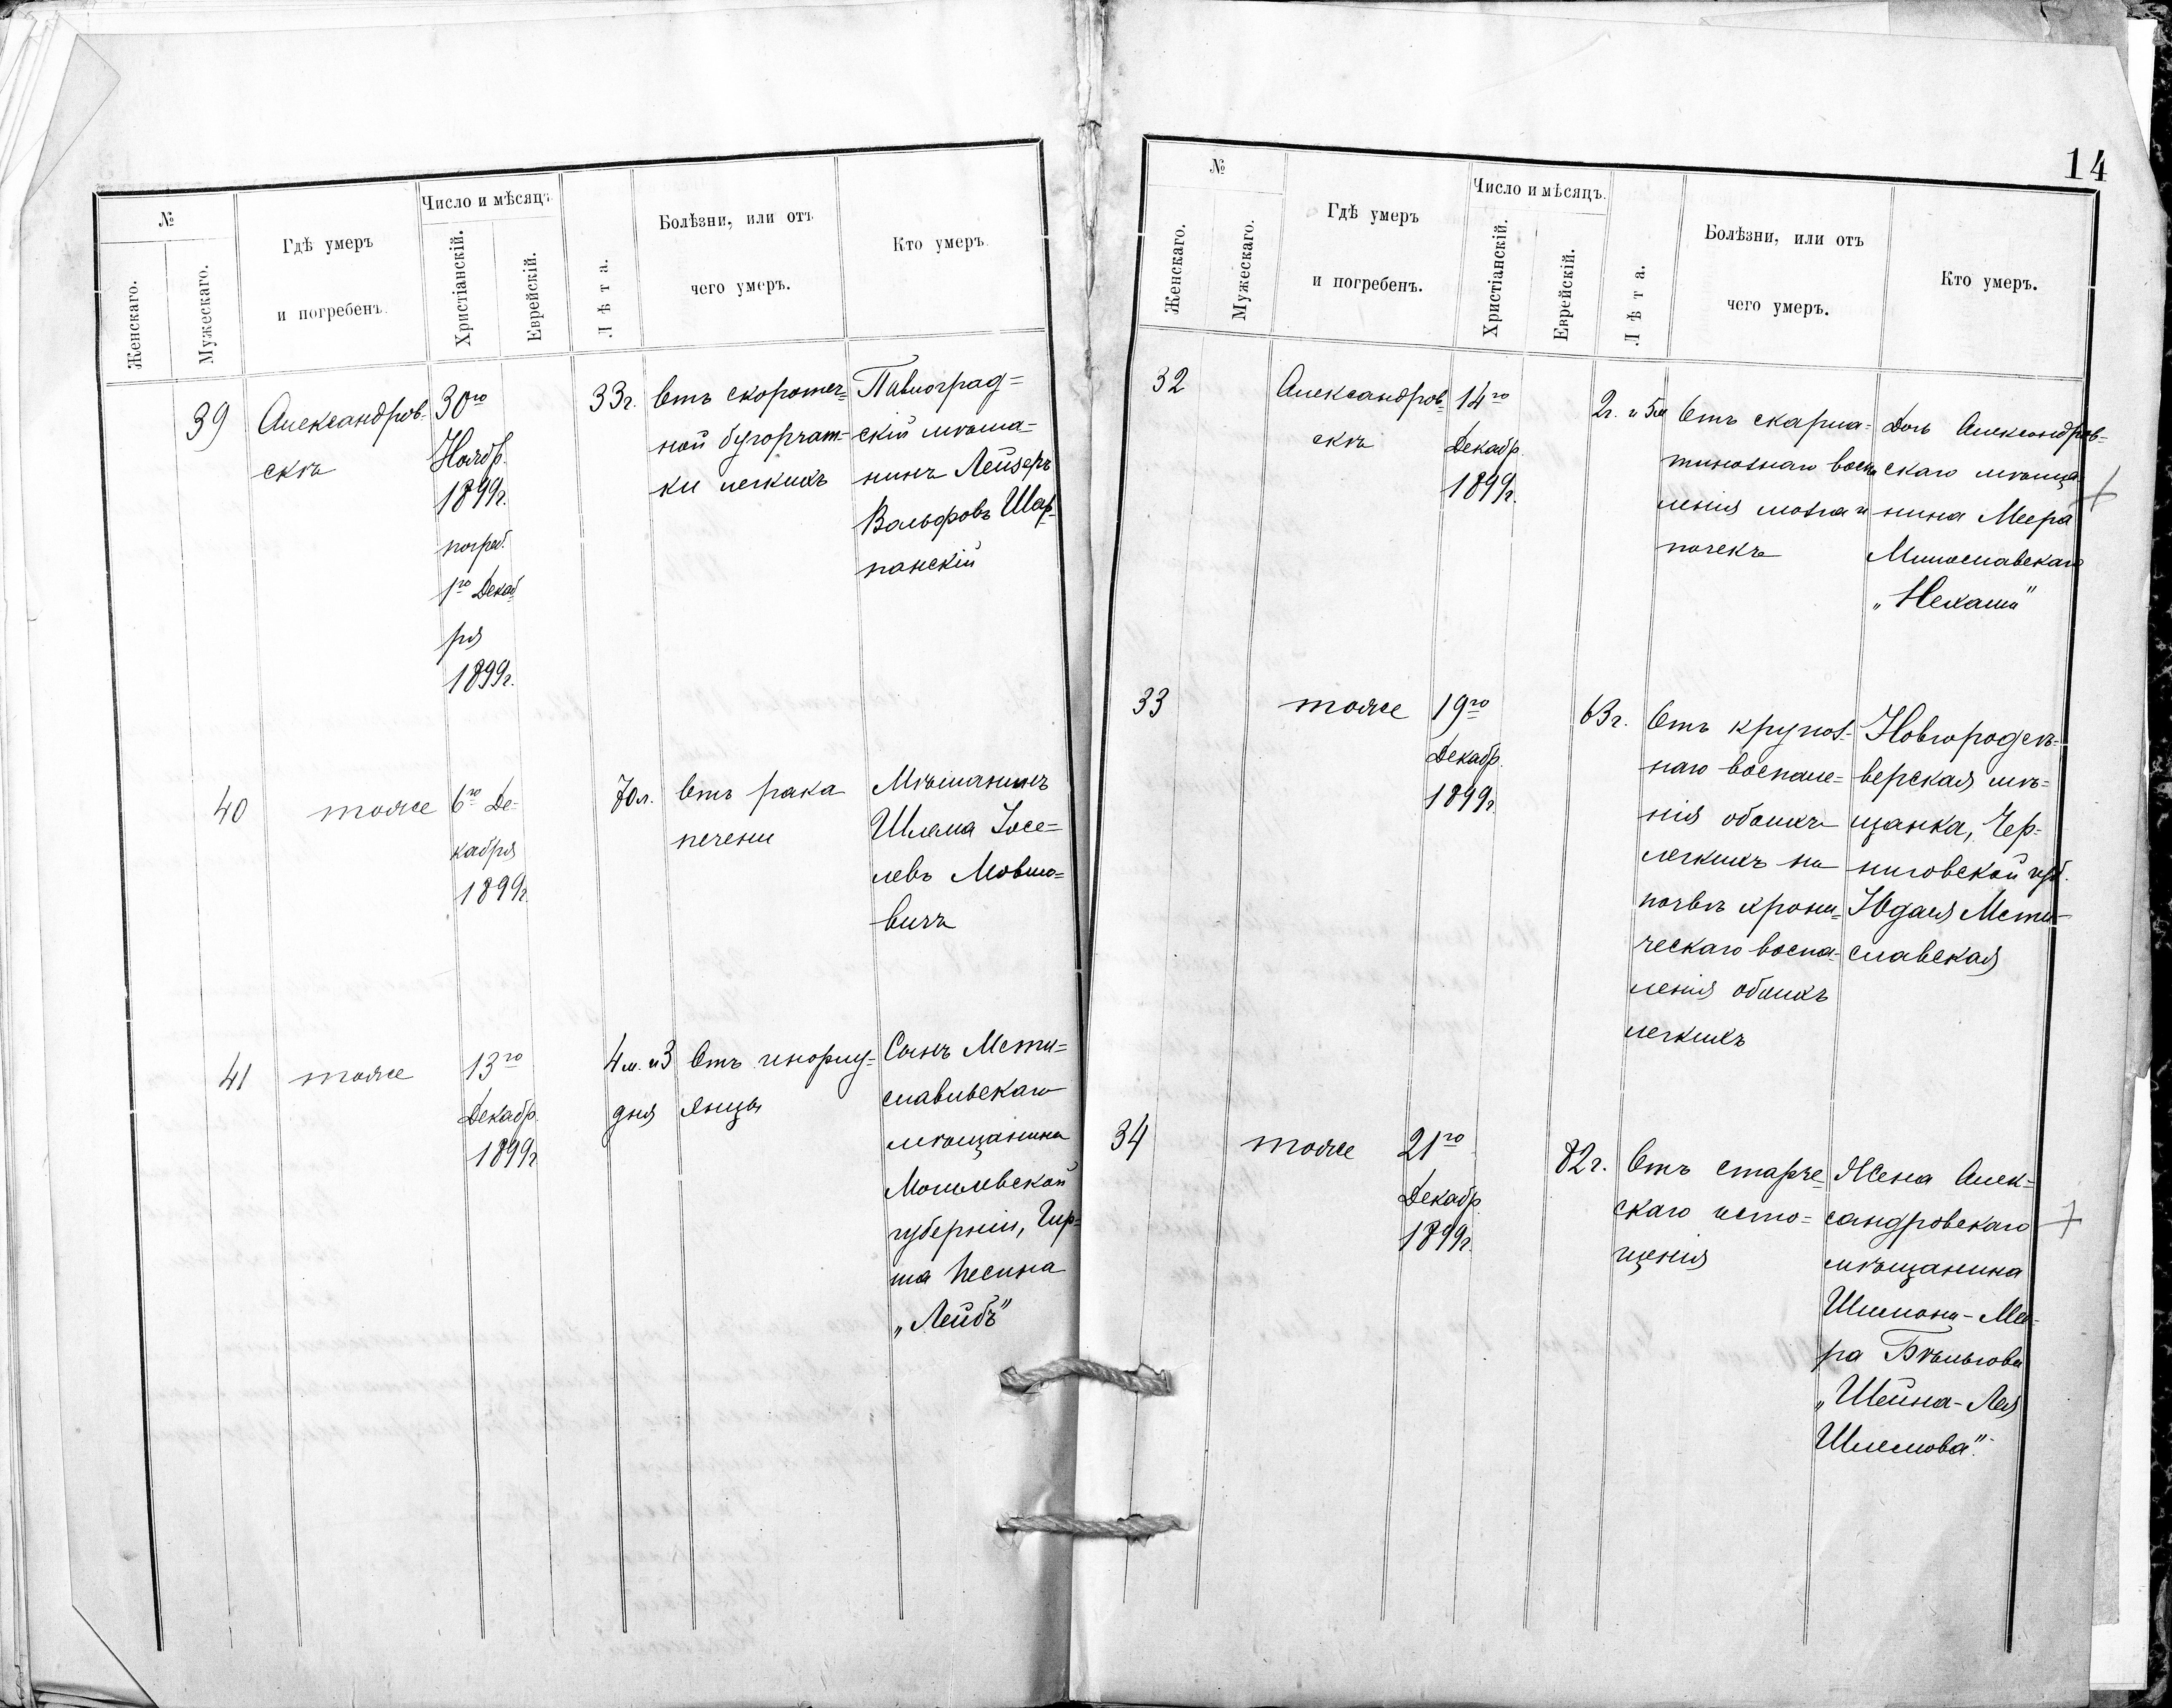 №
Женскаго.
Мужескаго.
Гдѣ умеръ
и погребенъ.
Число и мѣсяцъ.
Христіанскій.
Еврейскій.
Лѣта.
Болѣзни, или отъ
чего умеръ.
Кто умеръ.
39
Александров-
скъ
30го
Ноябр.
1899г.
погреб.
1го Декаб
ря
1899г.
33г.
Отъ скоротеч=
ной бугорчат=
ки легкихъ
Павлоград=
скій мѣща=
нинъ Лейзеръ
Вольфовъ Шар-
панскій
40
тоже
6го Де-
кабря
1899г.
70л.
Отъ рака
печени
Мѣщанинъ
Шлема Іосе=
левъ Мовшо=
вичъ
41
тоже
13го
Декабр.
1899г
4 м. и 3
дня
Отъ инфлу=
энцы
Сынъ Мсти=
славльскаго
мѣщанина
Могилевской
губерніи, Гир=
ша Песина
„Лейбъ"
14
№
Женскаго.
Мужескаго.
Гдѣ умеръ
и погребенъ.
Число и мѣсяцъ.
Христіанскій.
Еврейскій.
Лѣта.
Болѣзни, или отъ
чего умеръ.
Кто умеръ.
32
Александров-
скъ
14го
Декабр.
1899г.
2г. и 5м
Отъ скарла=
тинознаго воспа
ленія мозга и
почекъ
Дочь Александров=
скаго мѣща
нина Меера
Милославскаго
„Нехами"
33
тоже
19го
Декабр.
1899г.
63г.
Отъ крупоз-
наго воспале=
нія обоихъ
легкихъ на
почвѣ хрони=
ческаго воспа-
ленія обоихъ
легкихъ
Новгородсѣ-
верская мѣ=
щанка, Чер-
ниговской губ.
Мсти-
славская
34
тоже
21го
Декабр.
1899г.
82г.
Отъ старче-
скаго исто=
щенія
Жена Алек=
сандровскаго
мѣщанина
Шимона-Мее-
ра
„Шейна-Лея
Шлемова".